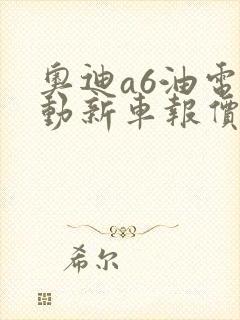 奧迪a6油電
動新車報價
希尔